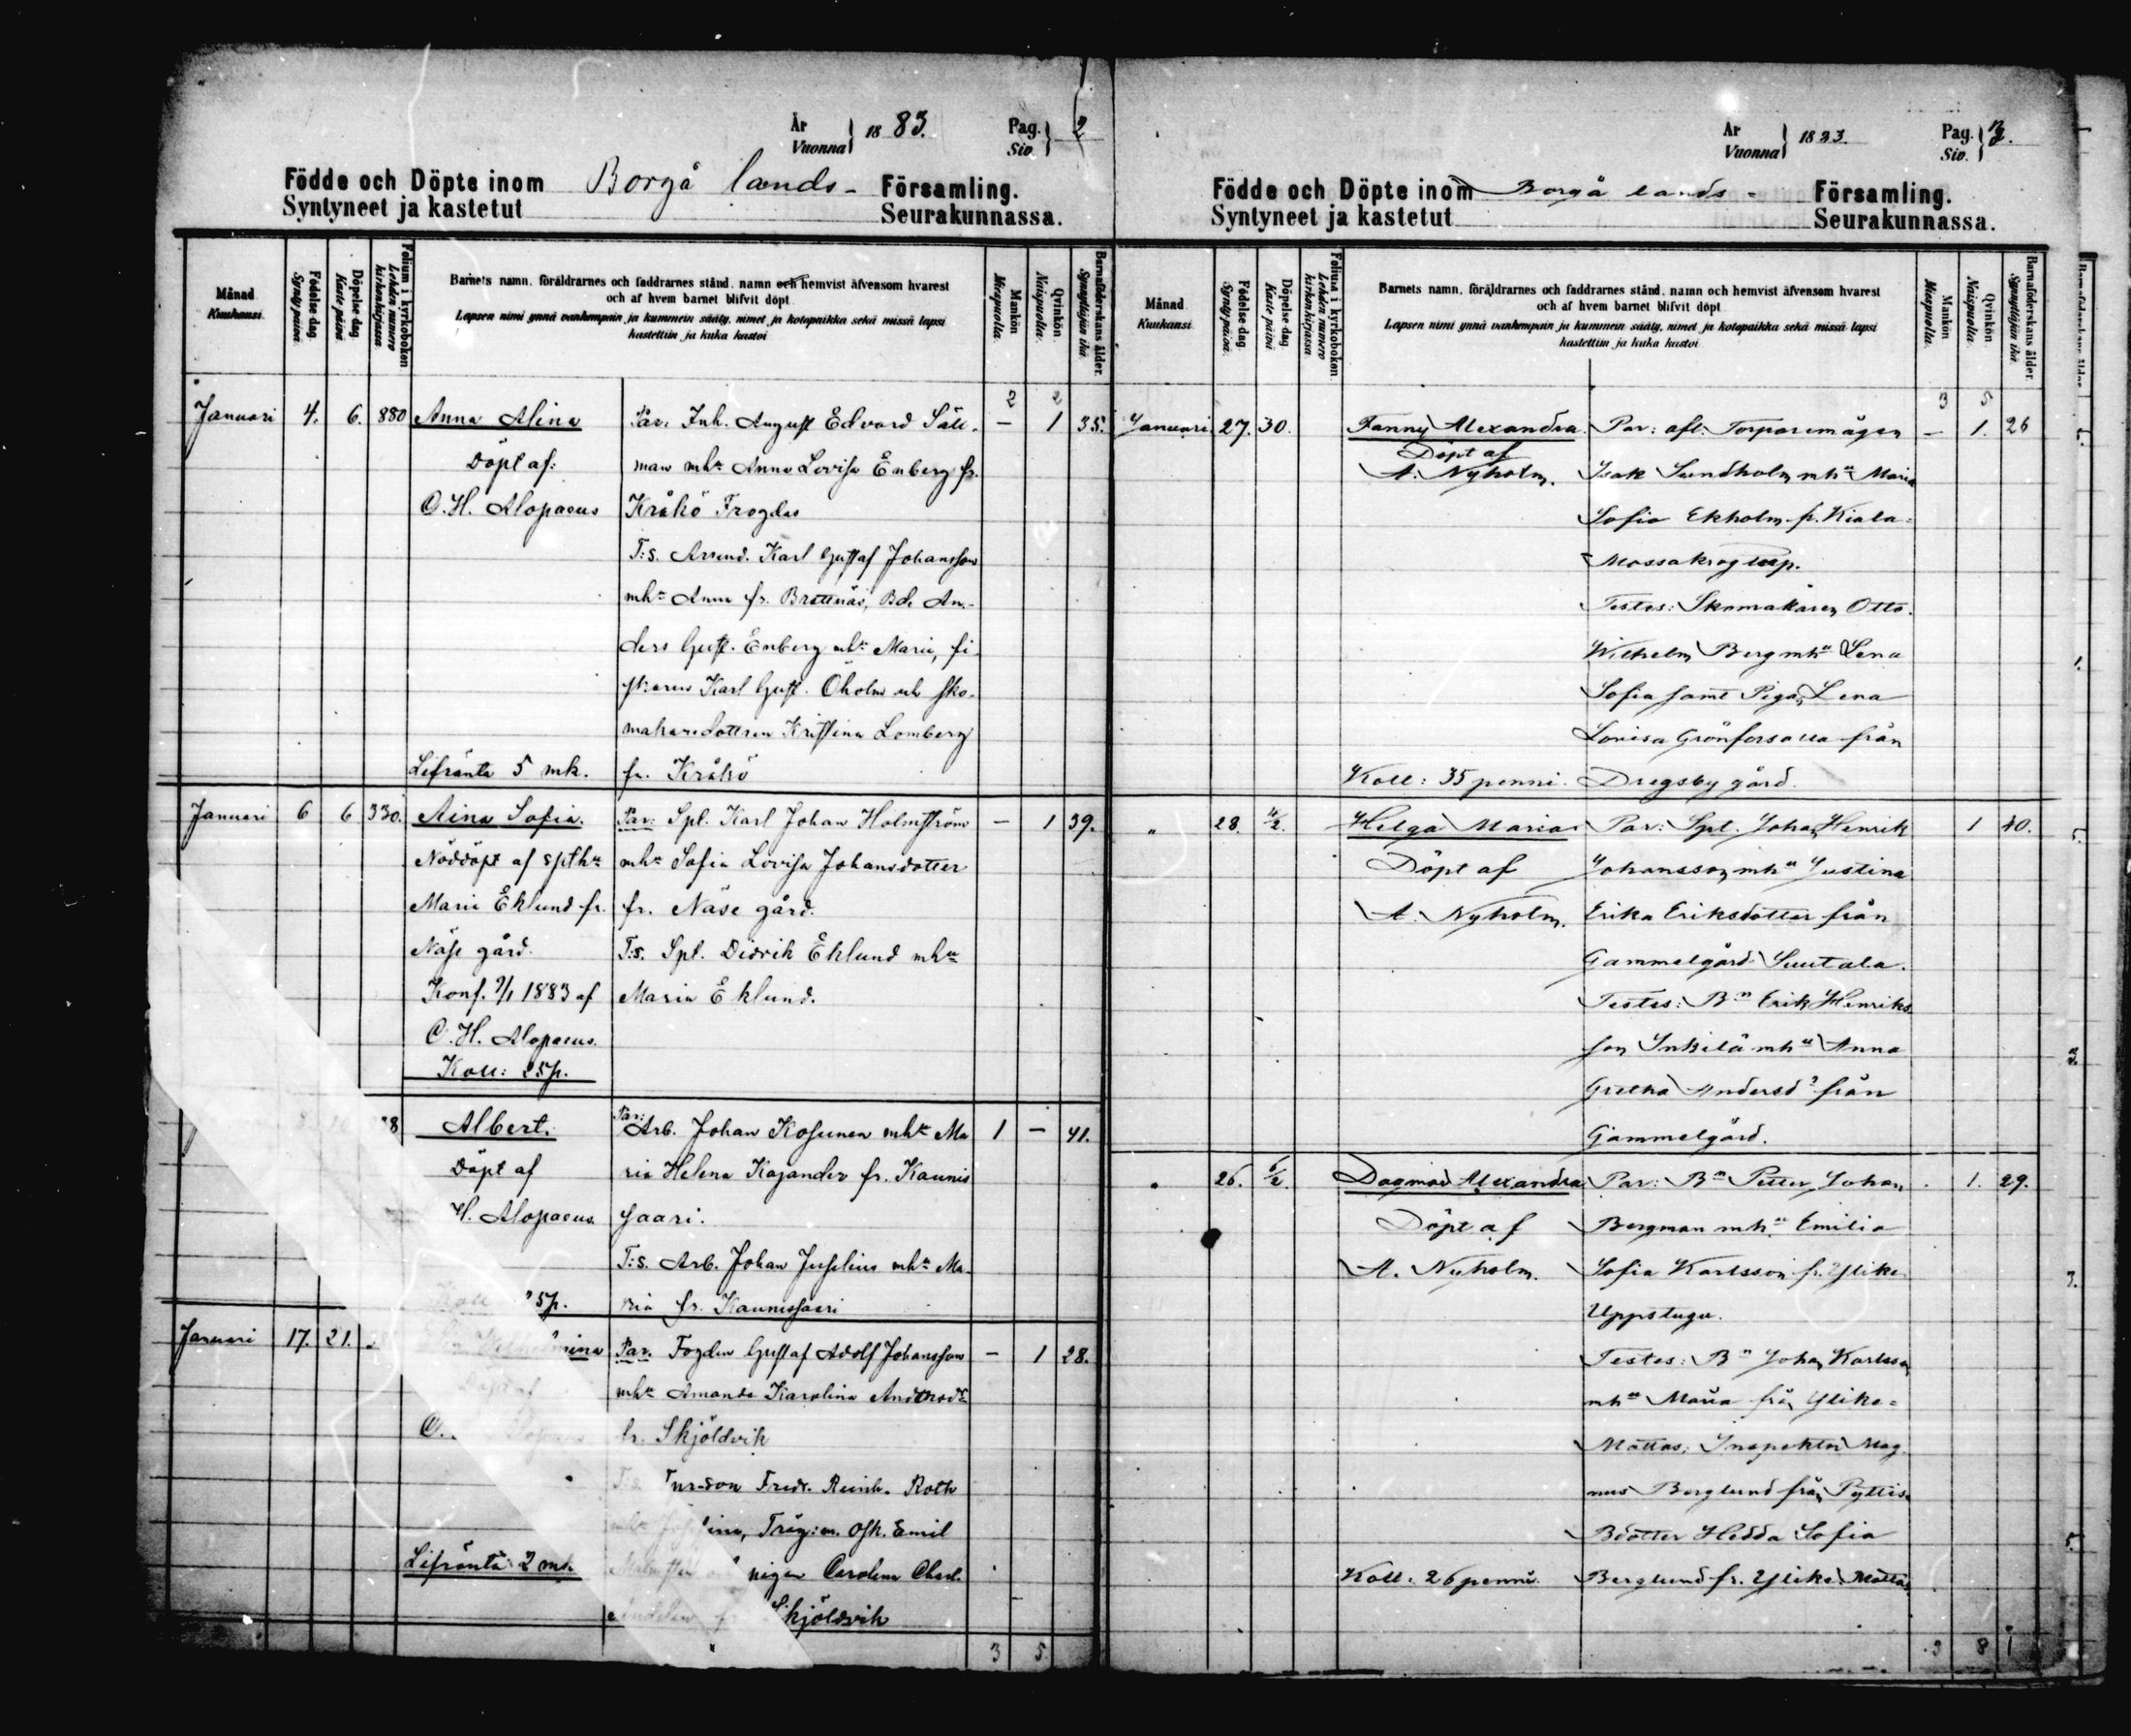 År
Vuonna } 1883. Pag.
Siv. } 2
Födde och Döpte inom Borgå lands- Församling.
Syntyneet ja kastetut Seurakunnassa.
Månad
Kuukausi.
Födelse dag.
Synty päivä.
Döpelse dag.
Kaste päivä
Folium i kyrkoboken
Lehden numero
kirkonkirjassa
Barnets namn, föräldrarnes och faddrarnes stånd, namn och hemvist äfvensom hvarest
och af hvem barnet blifvit döpt.
Lapsen nimi ynnä vanhempain ja kummein sääty, nimet ja kotopaikka sekä missä lapsi
kastettiin ja kuka kastoi
Mankön
Miespuolta.
Qvinkön
Naispuolta.
Barnaföderskans ålder.
Synnyttäjän ikä.
2 2
Januari 4. 6. 880 Anna Alina Par. Inh. August Edvard Säll- — 1 35.
Döpt af: man mhu Anna Lovisa Enberg fr.
O. H. Alopaeus Kråkö Frogdas
T:s. Arrend. Karl Gustaf Johansson
mhu Anna fr. Brattnäs, Bd. An-
ders Gust. Enberg mhu Maria, fi-
skaren Karl Gust. Öholm och sko-
makaredottren Kristina Lomberg
Lifränta 5 mk. fr. Kråkö
Januari 6 6 330. Aina Sofia. Par: Spl. Karl Johan Holmström — 1 39.
Nöddöpt af splhu mhu Sofia Lovisa Johansdotter
Maria Eklund fr. fr. Näse gård.
Näse gård. T:s. Spl. Didrik Eklund mhu
Konf. 9/1 1883 af Maria Eklund.
O. H. Alopaeus.
Koll: 25 p.
8 Albert. Par: Arb. Johan Kosunen mhu Ma 1 — 41.
Döpt af ria Helena Kajander fr. Kaunis
H. Alopaeus. saari.
T:s. Arb. Johan Juselius mhu Ma-
5 p. ria fr. Kaunissaari
Januari 17. 21. mina Par. Fogden Gustaf Adolf Johansson — 1 28.
Döpt af mhu Amanda Karolina Andersdr
O. fr. Skjöldvik
Fredr. Reinh. Roth
Träg:m. Osk. Emil
Lifränta 2 mk. pigan Carolina Charl.
Skjöldvik
3 5
År
Vuonna } 1883. Pag.
Siv. } 3.
Födde och Döpte inom Borgå lands- Församling.
Syntyneet ja kastetut Seurakunnassa.
Månad
Kuukausi
Födelse dag.
Synty päivä.
Döpelse dag
Kaste päivä
Folium i kyrkoboken.
Lehden numero
kirkonkirjassa
Barnets namn, föräldrarnes och faddrarnes stånd, namn och hemvist äfvensom hvarest
och af hvem barnet blifvit döpt
Lapsen nimi ynnä vanhempain ja kummein sääty, nimet ja kotopaikka sekä missä lapsi
kastettiin ja kuka kastoi
Mankön
Miespuolta.
Qvinkön
Naispuolta.
Barnaföderskans ålder.
Synnyttäjän ikä
3 5
Januari 27. 30. Fanny Alexandra. Par: afl. Torparemågen — 1. 26
Döpt af
A. Nyholm. Isak Sundholm mhu Maria
Sofia Ekholm fr. Kiala-
Mossakrog torp.
Testes: Skomakaren Otto
Wilhelm Berg mhu Lena
Sofia samt Pigan Lena
Lovisa Grönfors alla från
Koll: 35 penni. Dregsby gård.
" 28. 4/2. Helga Maria Par: Spl. Johan Henrik 1 40.
Döpt af Johansson mhu Justina
A. Nyholm. Erika Eriksdotter från
Gammelgård Suutala.
Testes: Bn Erik Henriks
son Inkilä mhu Anna
Gretha Andersdr från
Gammelgård.
" 26. 6/2. Dagmar Alexandra Par: Bn Petter Johan 1. 29.
Döpt af Bergman mhu Emilia
A. Nyholm. Sofia Karlsson fr. Ylike
Uppstugu.
Testes: Bn Johan Karlsson
mhu Maria från Ylike-
Mattas; Inspektor Mag
nus Berglund från Pyttis
Bdotter Hedda Sofia
Koll: 26 penni. Berglund fr. Ylike Mattas
3 8